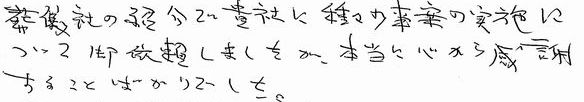 葬儀社の紹介で貴社に種々の事案の実施に
ついて御依頼しましたが、本当に心から感謝
することばかりでした。